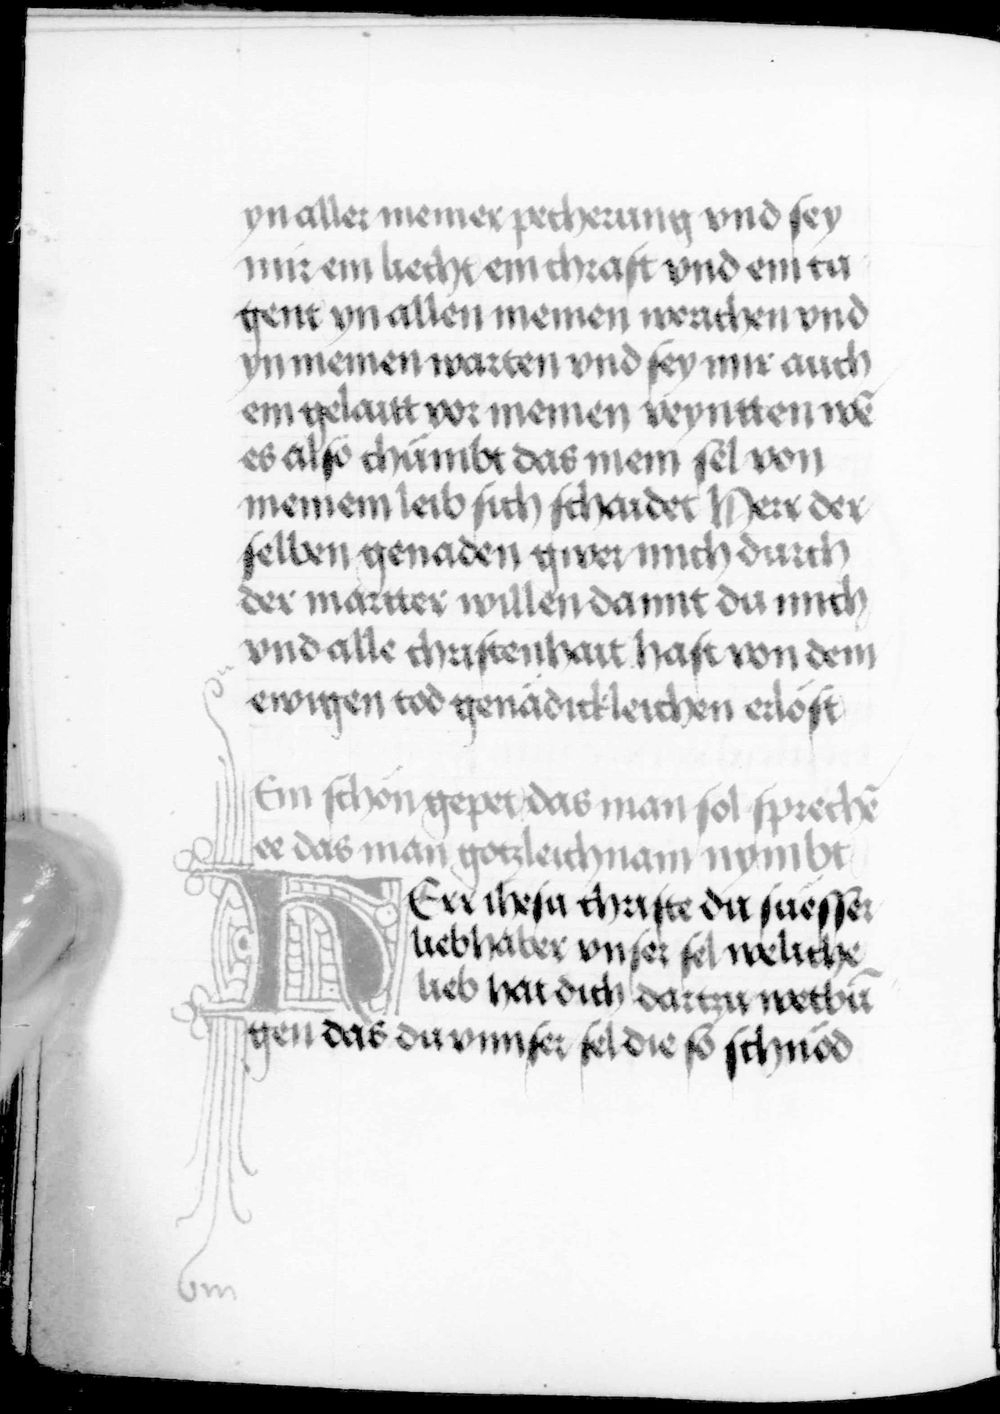 yn aller meiner pecherung vnd sey
mir ein liecht ein chraft vnd ein tu
gent yn allen meinen werchen vnd
yn meinen warten vnd sey mir auch
ein gelaitt vor meinen veyntten wē
es also chümbt das mein sel von
meinem leib sich schaidet Herr der
selben genaden gwer mich durch
der martter willen damit du mich
vnd alle christenhait hast von dem
ewigen tod genädickleichen erlöst
Ein schön gepet das man sol sprechē
ee das man gotzleichnam nymbt
HErr ihesu christe du suësser
liebhaber vnser sel weliche
lieb hat dich dartzu
gen das du vnnser sel die so schnöd